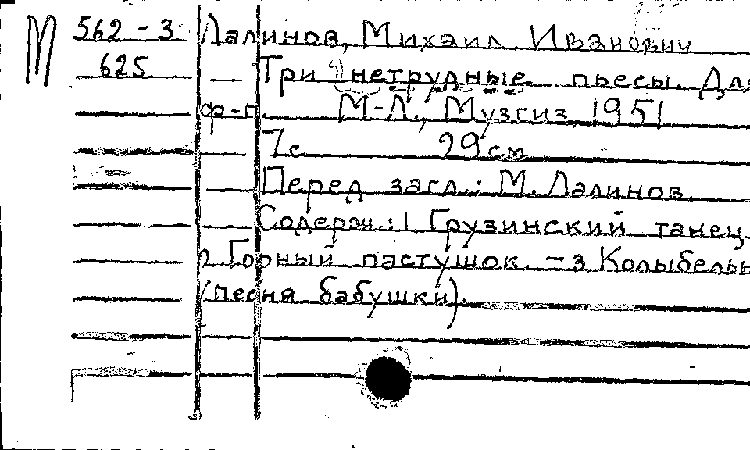 М 562-3 Лалинов, Михаил Иванович
625 Три нетрудные пьесы. Для
ф-п. М-Л., Музгиз 1951
7с 29см
Перед загл.: М. Лалинов.
Содерж.: 1 Грузинский танец
2 Горный пастушок. - 3 Колыбельн
(песня бабушки).